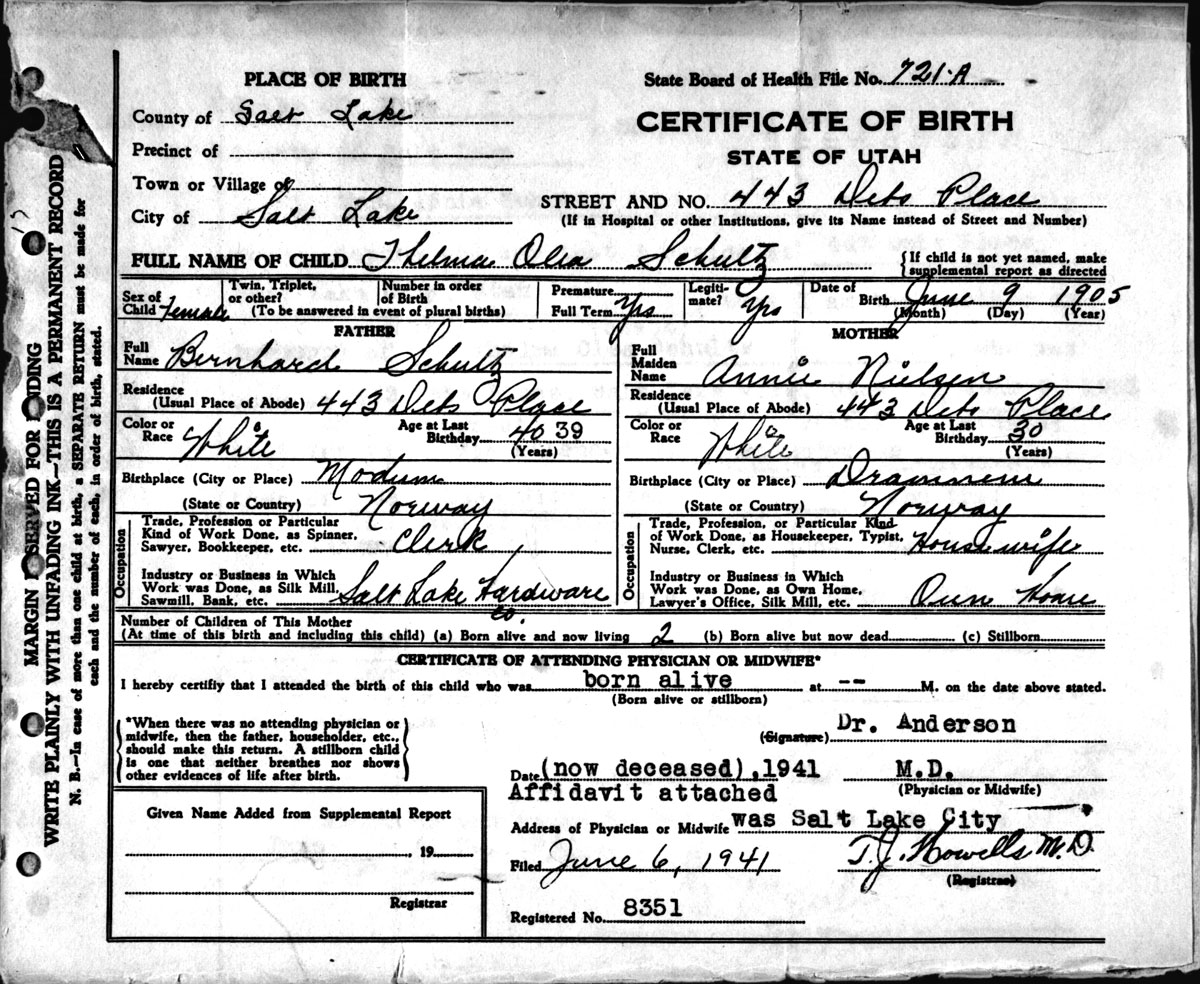 PLACE OF BIRTH
State Board of Health File No. 721-A
County of Salt Lake
CERTIFICATE OF BIRTH
Precinct of
STATE OF UTAH
Town or Village of
STREET AND NO. 443 Dets Place
City of Salt Lake
(If in Hospital or other Institutions, give its Name instead of Street and Number)
FULL NAME OF CHILD Thelma Olea Schultz
{If child is not yet named, make supplemental report as directed
Sex of Child Female
Twin, Triplet, or other?
Number in order of Birth
(To be answered in event of plural births)
Premature
Full Term Yes
Legiti-mate? Yes
Date of Birth June 9 1905
(Month) (Day) (Year)
FATHER
Full Name Bernhard Schultz
Residence
(Usual Place of Abode) 443 Dets Place
Color or Race White
Age at Last Birthday 40 39
(Years)
Birthplace (City or Place) Modum
(State or Country) Norway
Occupation
Trade, Profession or Particular
Kind of Work Done, as Spinner,
Sawyer, Bookkeeper, etc. Clerk
Industry or Business in Which
Work was Done, as Silk Mill,
Sawmill, Bank, etc. Salt Lake Hardware Co.
MOTHER
Full Maiden Name Annie Nielsen
Residence
(Usual Place of Abode) 443 Dets Place
Color or Race White
Age at Last Birthday 30
(Years)
Birthplace (City or Place) Drammem
(State or Country) Norway
Occupation
Trade, Profession, or Particular Kind
of Work Done, as Housekeeper, Typist,
Nurse, Clerk, etc. Housewife
Industry or Business in Which
Work was Done, as Own Home,
Lawyer's Office, Silk Mill, etc. Own Home
Number of Children of This Mother
(At time of this birth and including this child) (a) Born alive and now living 2 (b) Born alive but now dead (c) Stillborn
CERTIFICATE OF ATTENDING PHYSICIAN OR MIDWIFE*
I hereby certify that I attended the birth of this child who was born alive at -- M. on the date above stated.
(Born alive or stillborn)
*When there was no attending physician or
midwife, then the father, householder, etc.,
should make this return. A stillborn child
is one that neither breathes nor shows
other evidences of life after birth.
(Signature) Dr. Anderson
Date (now deceased), 1941 M.D.
(Physician or Midwife)
Affidavit attached
Address of Physician or Midwife was Salt Lake City
Filed June 6, 1941 T.J. Howells M.D.
(Registrar)
Registered No. 8351
Given Name Added from Supplemental Report
, 19
Registrar
MARGIN RESERVED FOR BINDING
WRITE PLAINLY WITH UNFADING INK—THIS IS A PERMANENT RECORD
N. B.—In case of more than one child at birth, a SEPARATE RETURN must be made for
each and the number of each, in order of birth, stated.